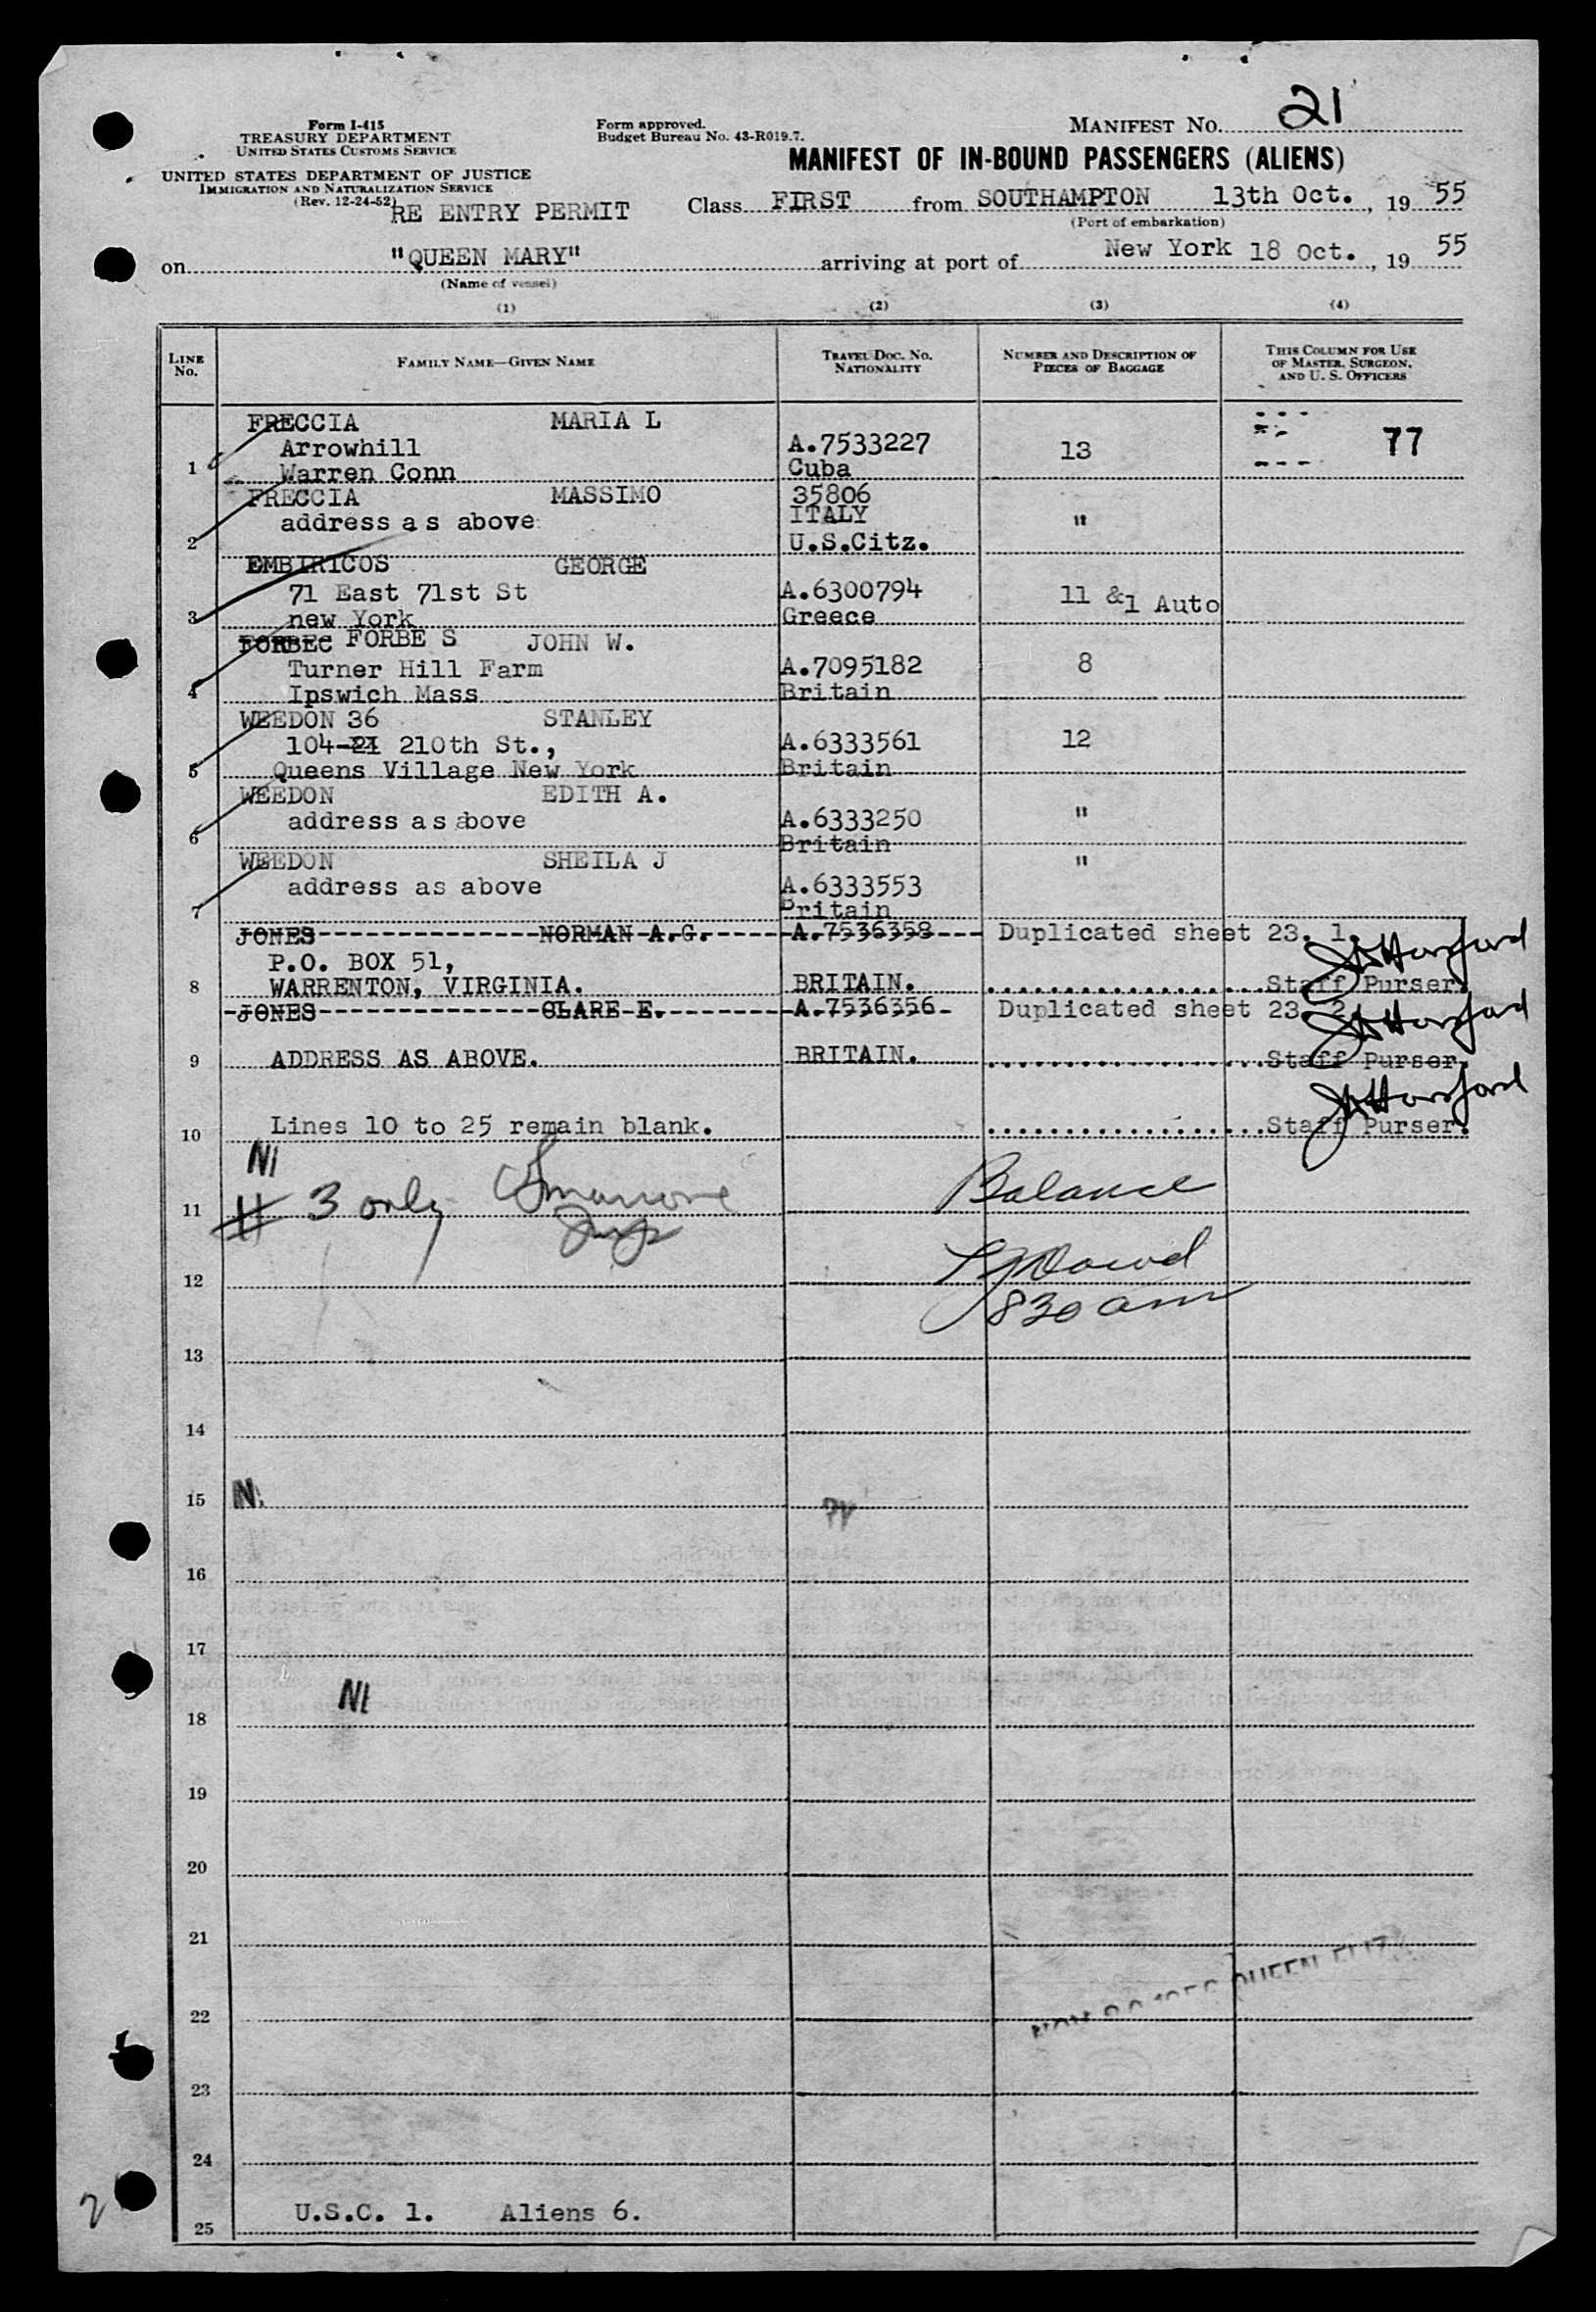 Form I-415
TREASURY DEPARTMENT
UNITED STATES CUSTOMS SERVICE
UNITED STATES DEPARTMENT OF JUSTICE
IMMIGRATION AND NATURALIZATION SERVICE
(Rev. 12-24-52)
Form approved.
Budget Bureau No. 43-R019.7.
MANIFEST NO. 21
MANIFEST OF IN-BOUND PASSENGERS (ALIENS)
RE ENTRY PERMIT
Class FIRST from SOUTHAMPTON 13th Oct., 19 55
(Port of embarkation)
on "QUEEN MARY" arriving at port of New York 18 Oct., 19 55
(Name of vessel)
(1) (2) (3) (4)
LINE No. FAMILY NAME—GIVEN NAME TRAVEL DOC. NO. NATIONALITY NUMBER AND DESCRIPTION OF PIECES OF BAGGAGE THIS COLUMN FOR USE OF MASTER, SURGEON, AND U. S. OFFICERS
FRECCIA MARIA L
Arrowhill A.7533227 13 77
1 Warren Conn Cuba
FRECCIA MASSIMO 35806
address as above ITALY "
2 U.S.Citz.
EMBIRICOS GEORGE
71 East 71st St A.6300794 11 & 1 Auto
3 new York Greece
FORBEC FORBE S JOHN W.
Turner Hill Farm A.7095182 8
4 Ipswich Mass Britain
WEEDON 36 STANLEY
104-21 210th St., A.6333561 12
5 Queens Village New York Britain
WEEDON EDITH A.
address as above A.6333250 "
6 Britain
WEEDON SHEILA J "
address as above A.6333553
7 Britain
JONES NORMAN A.G. A.7536358 Duplicated sheet 23. 1.
P.O. BOX 51,
8 WARRENTON, VIRGINIA. BRITAIN. Staff Purser.
JONES CLARE E. A.7536356 Duplicated sheet 23. 2.
9 ADDRESS AS ABOVE. BRITAIN. Staff Purser.
10 Lines 10 to 25 remain blank. Staff Purser.
NI
11 # 3 only Balance
12
830 am
13
14
15 N
16
17
NI
18
19
20
21
QUEEN ELIZ
22
23
24
U.S.C. 1. Aliens 6.
25
2